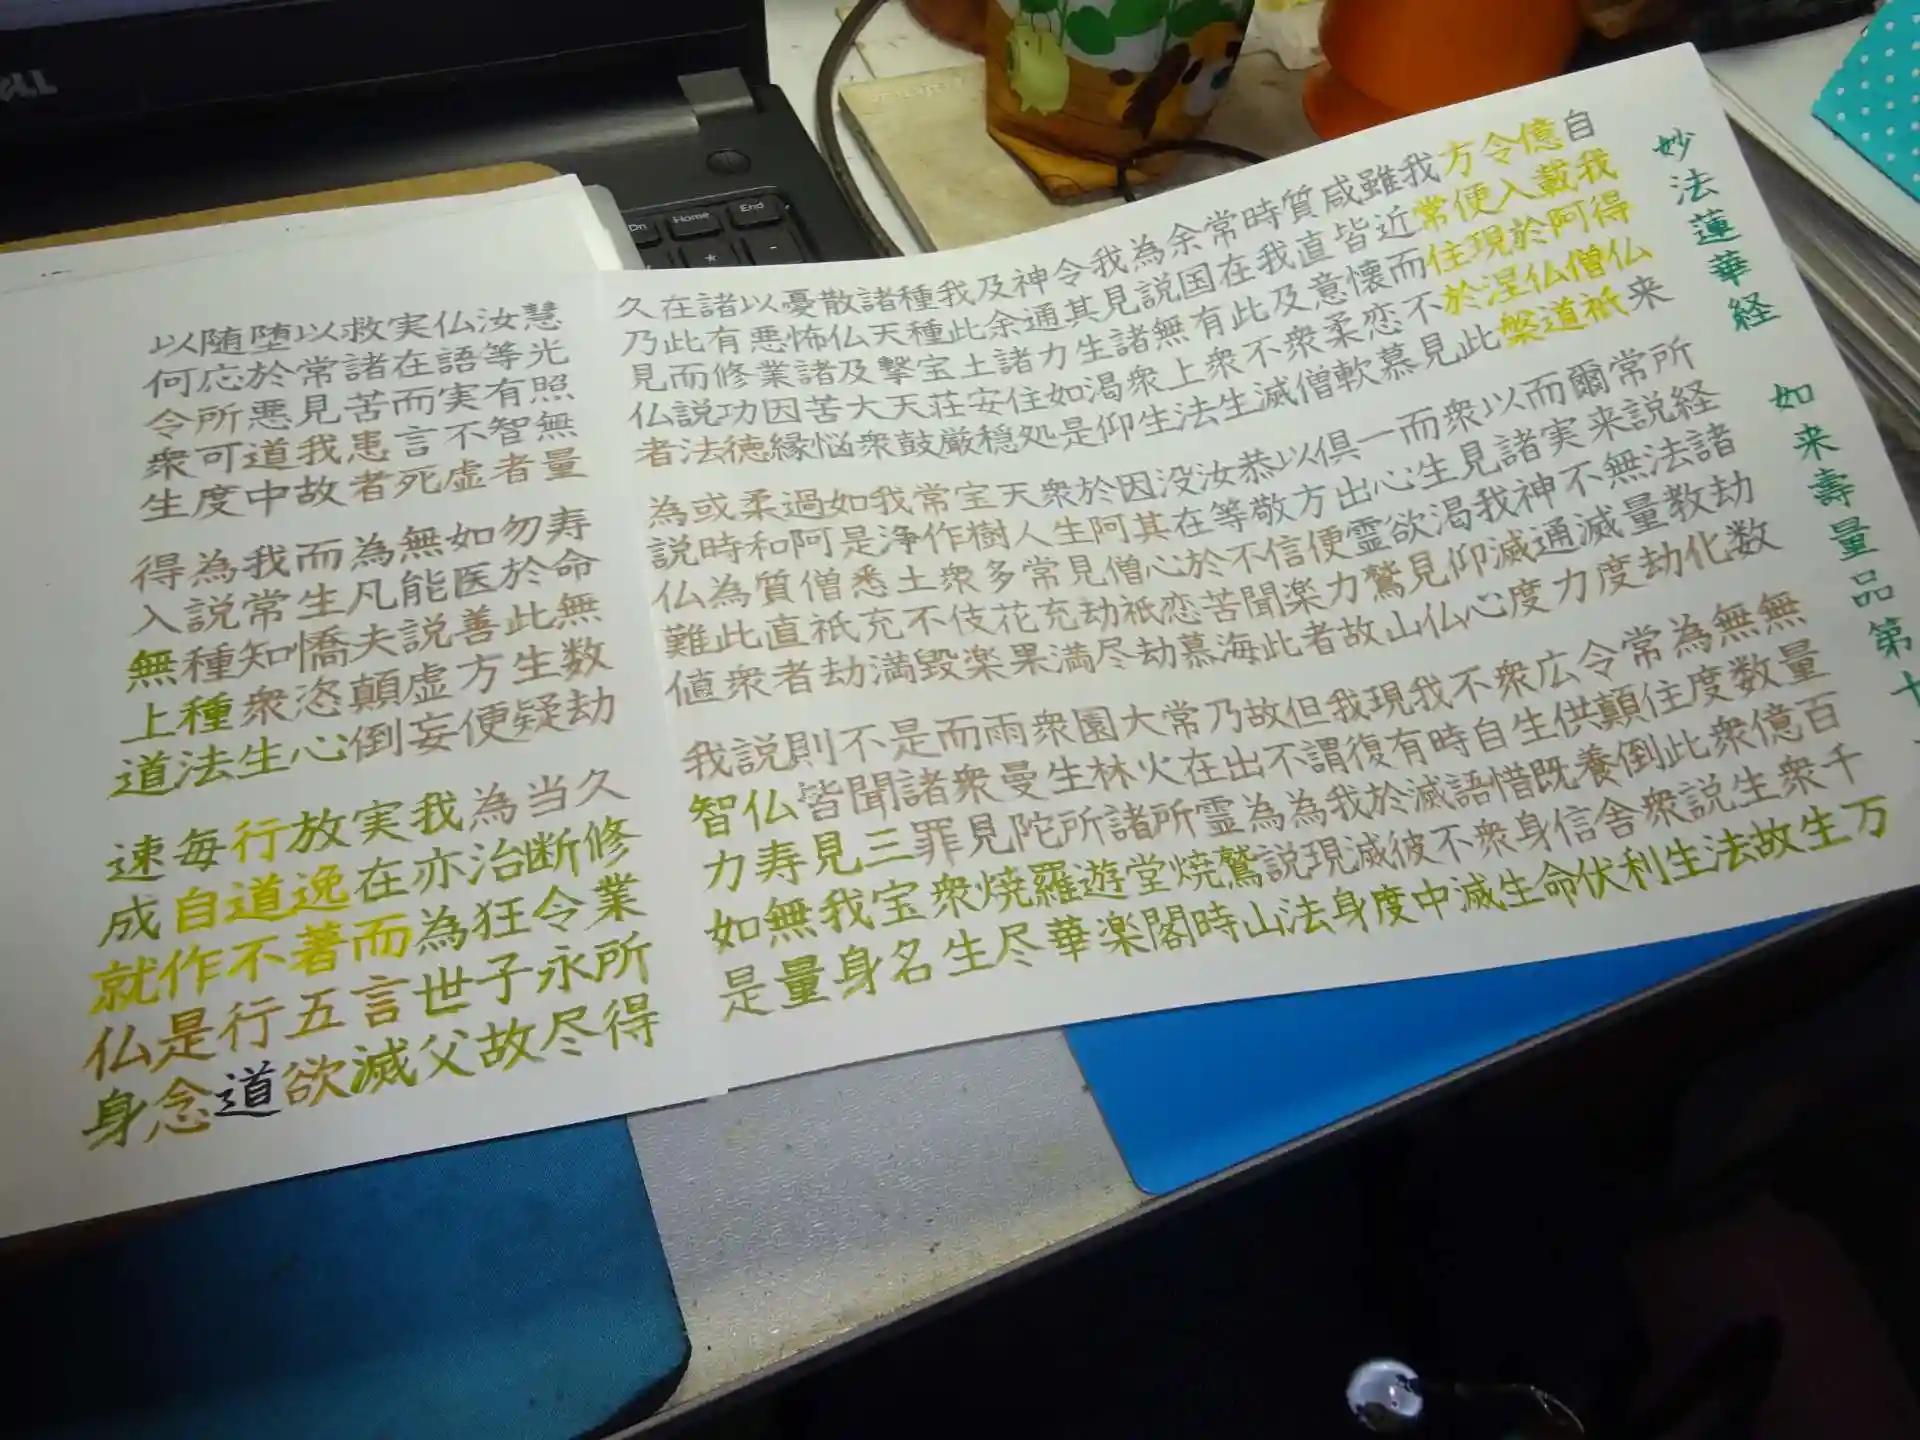 妙法蓮華経 如来壽量品第十
自我得仏来 所経諸劫数 無量百千万
億載阿僧祇 常説法教化 無数億衆生
令入於仏道 爾来無量劫 為度衆生故
方便現涅槃 而実不滅度 常住此説法
我常住於此 以諸神通力 令顛倒衆生
雖近而不見 衆見我滅度 広供養舎利
咸皆懐恋慕 而生渇仰心 衆生既信伏
質直意柔軟 一心欲見仏 不自惜身命
時我及衆僧 倶出靈鷲山 我時語衆生
常在此不滅 以方便力故 現有滅不滅
余国有衆生 恭敬信楽者 我復於彼中
為説無上法 汝等不聞此 但謂我滅度
我見諸衆生 没在於苦海 故不為現身
令其生渇仰 因其心恋慕 乃出為説法
神通力如是 於阿僧祇劫 常在靈鷲山
及余諸住処 衆生見劫尽 大火所焼時
我此土安穏 天人常充満 園林諸堂閣
種種宝荘厳 宝樹多花果 衆生所遊楽
諸天撃天鼓 常作衆伎楽 雨曼陀羅華
散仏及大衆 我浄土不毀 而衆見焼尽
憂怖諸苦悩 如是悉充満 是諸罪衆生
以悪業因縁 過阿僧祇劫 不聞三宝名
諸有修功徳 柔和質直者 則皆見我身
在此而説法 或時為此衆 説仏寿無量
久乃見仏者 為説仏難値 我智力如是
慧光照無量 寿命無数劫 久修業所得
汝等有智者 勿於此生疑 当断令永尽
仏語実不虚 如医善方便 為治狂子故
実在而言死 無能説虚妄 我亦為世父
救諸苦患者 為凡夫顛倒 実在而言滅
以常見我故 而生憍恣心 放逸著五欲
堕於悪道中 我常知衆生 行道不行道
随応所可度 為説種種法 毎自作是念
以何令衆生 得入無上道 速成就仏身
DELL
Home
End